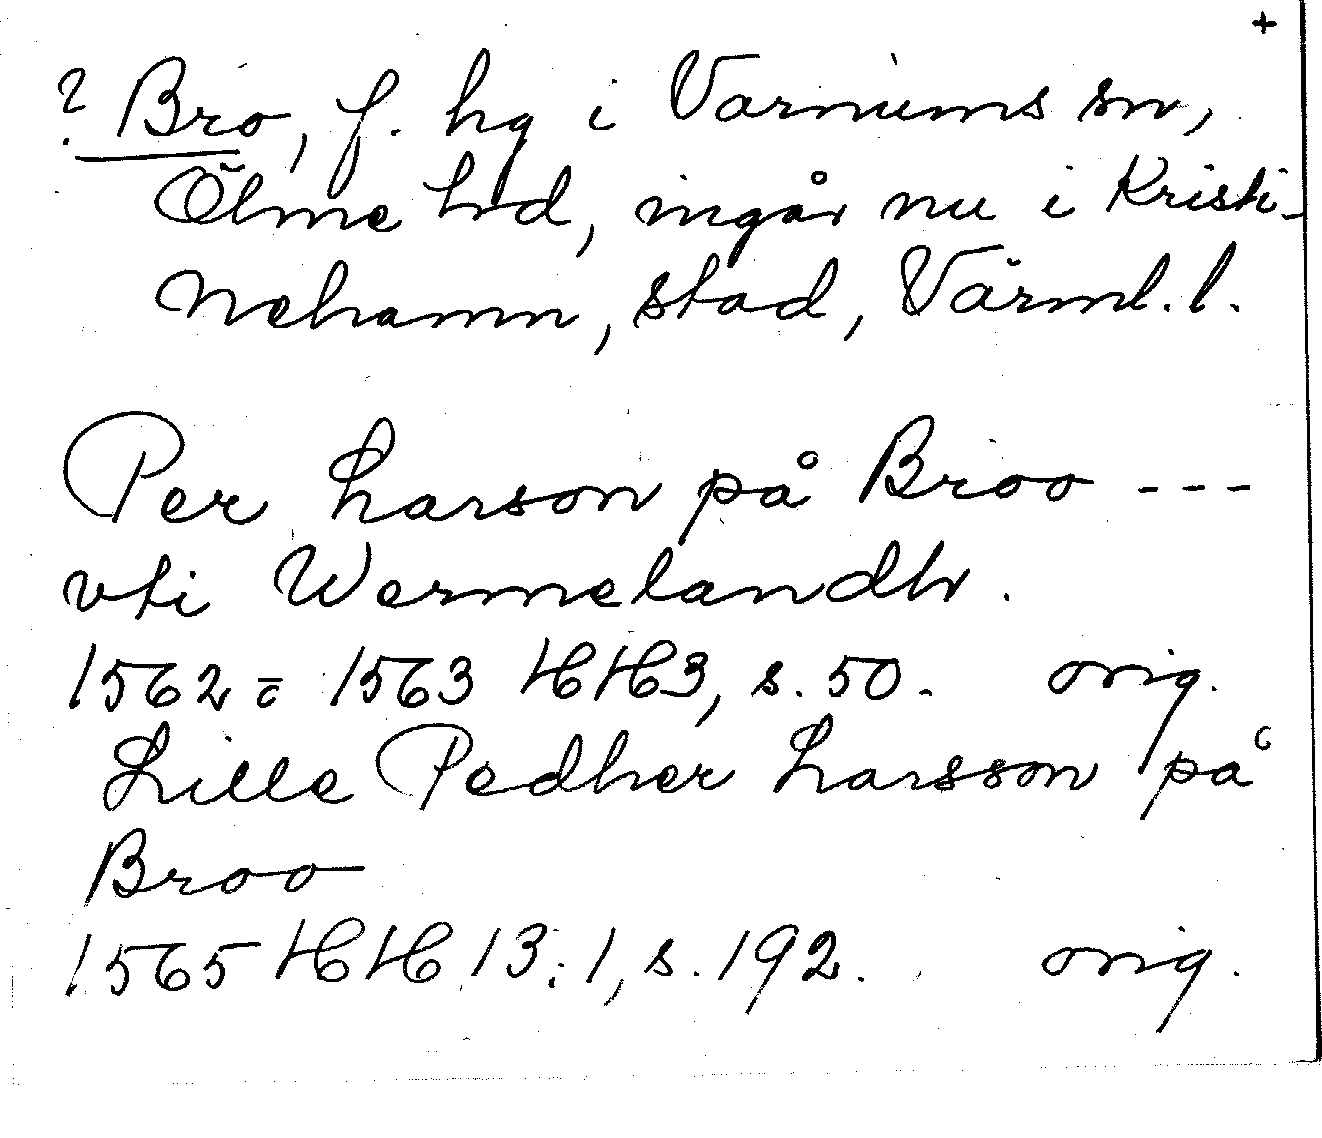 +
? Bro, f. hg i Varnums sn,
Ölme hd, ingår nu i Kristi-
nehamn, stad, Värml. l.
Per Larson på Broo ---
vti Wermelandh.
1562 = 1563 HH 3, s. 50. orig.
Lille Pedher Larsson på
Broo
1565 HH 13:1, s. 192. orig.